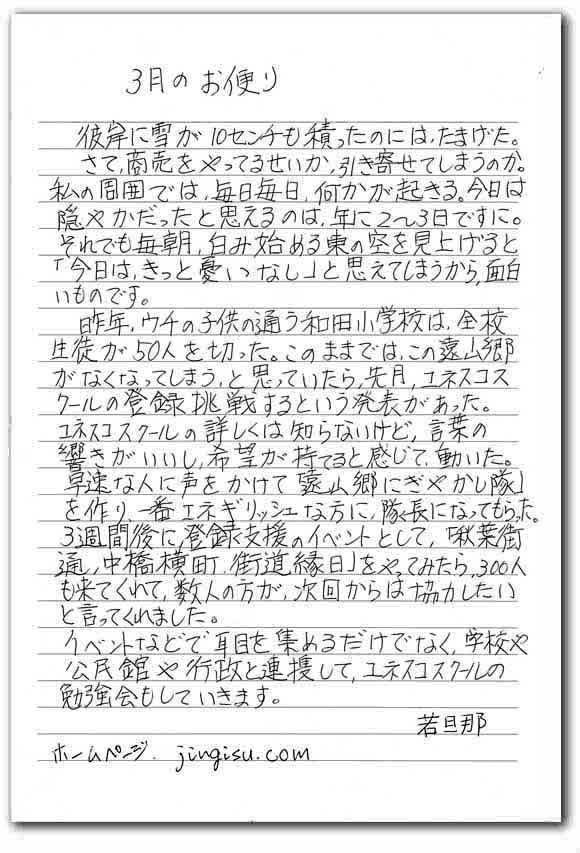 3月のお便り
彼岸に雪が10センチも積ったのには、たまげた。
さて、商売をやってるせいか、引き寄せてしまうのか。
私の周囲では、毎日毎日、何かが起きる。今日は
隠やかだったと思えるのは、年に2〜3日ですに。
それでも毎朝、白み始める東の空を見上げると
「今日は、きっと憂いなし」と思えてしまうから、面白
いものです。
昨年、ウチの子供の通う和田小学校は、全校
生徒が50人を切った。このままでは、この遠山郷
がなくなってしまう、と思っていたら、先月、ユネスコス
クールの登録挑戦するという発表があった。
ユネスコスクールの詳しくは知らないけど、言葉の
響きがいいし、希望が持てると感じて、動いた。
早速な人に声をかけて「遠山郷にぎやかし隊」
を作り、一番エネギリッシュな方に、隊長になってもらった。
3週間後に、登録支援のイベントとして、「秋葉街
道、中橋横町、街道縁日」をやってみたら、300人
も来てくれて、数人の方が、次回からは協力したい
と言ってくれました。
イベントなどで耳目を集めるだけでなく、学校や
公民館や行政と連携して、ユネスコスクールの
勉強会もしていきます。
若旦那
ホームページ. jingisu.com